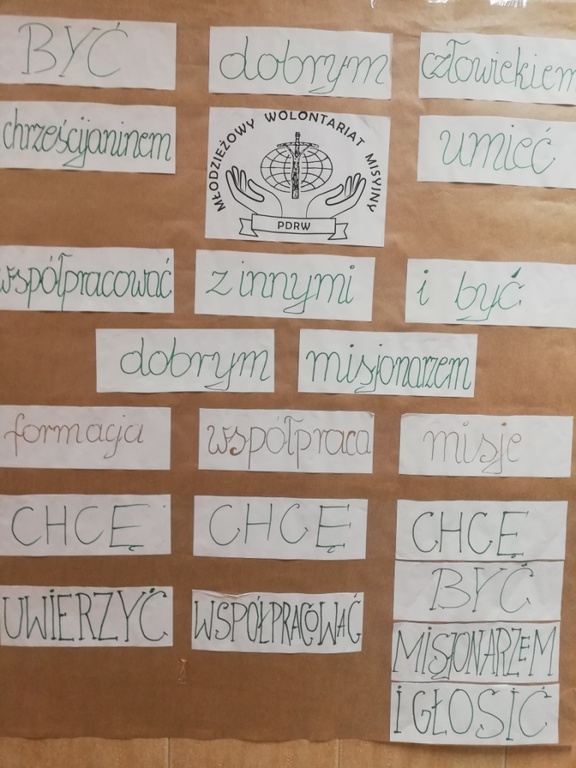 BYĆ dobrym człowiekiem
chrześcijaninem
MŁODZIEŻOWY WOLONTARIAT MISYJNY
PDRW
umieć
współpracować z innymi i być
dobrym misjonarzem
formacja współpraca misje
CHCĘ CHCĘ CHCĘ
BYĆ
UWIERZYĆ WSPÓŁPRACOWAĆ MISJONARZEM
I GŁOSIĆ